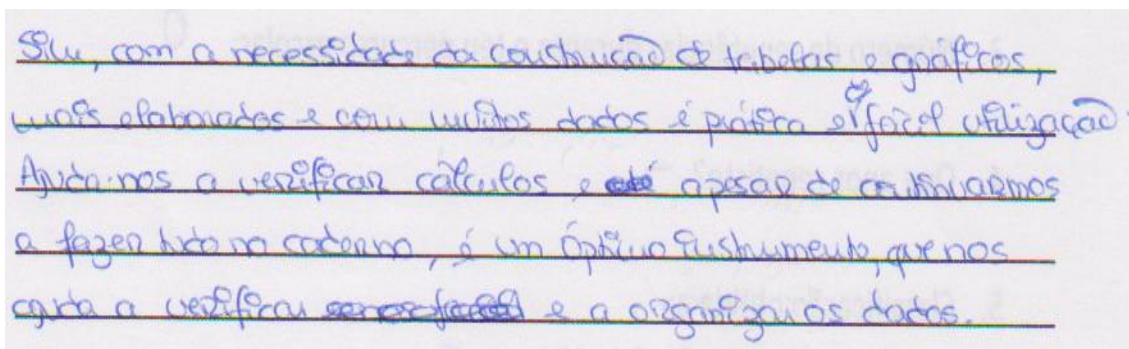 Sim, com a necessidade da construção de tabelas e gráficos,
mais elaborados e com muitos dados é prática e de fácil utilização.
Ajuda-nos a verificar cálculos, e até apesar de continuarmos
a fazer tudo no caderno, é um óptimo instrumento, que nos
ajuda a verificar e a organizar os dados.